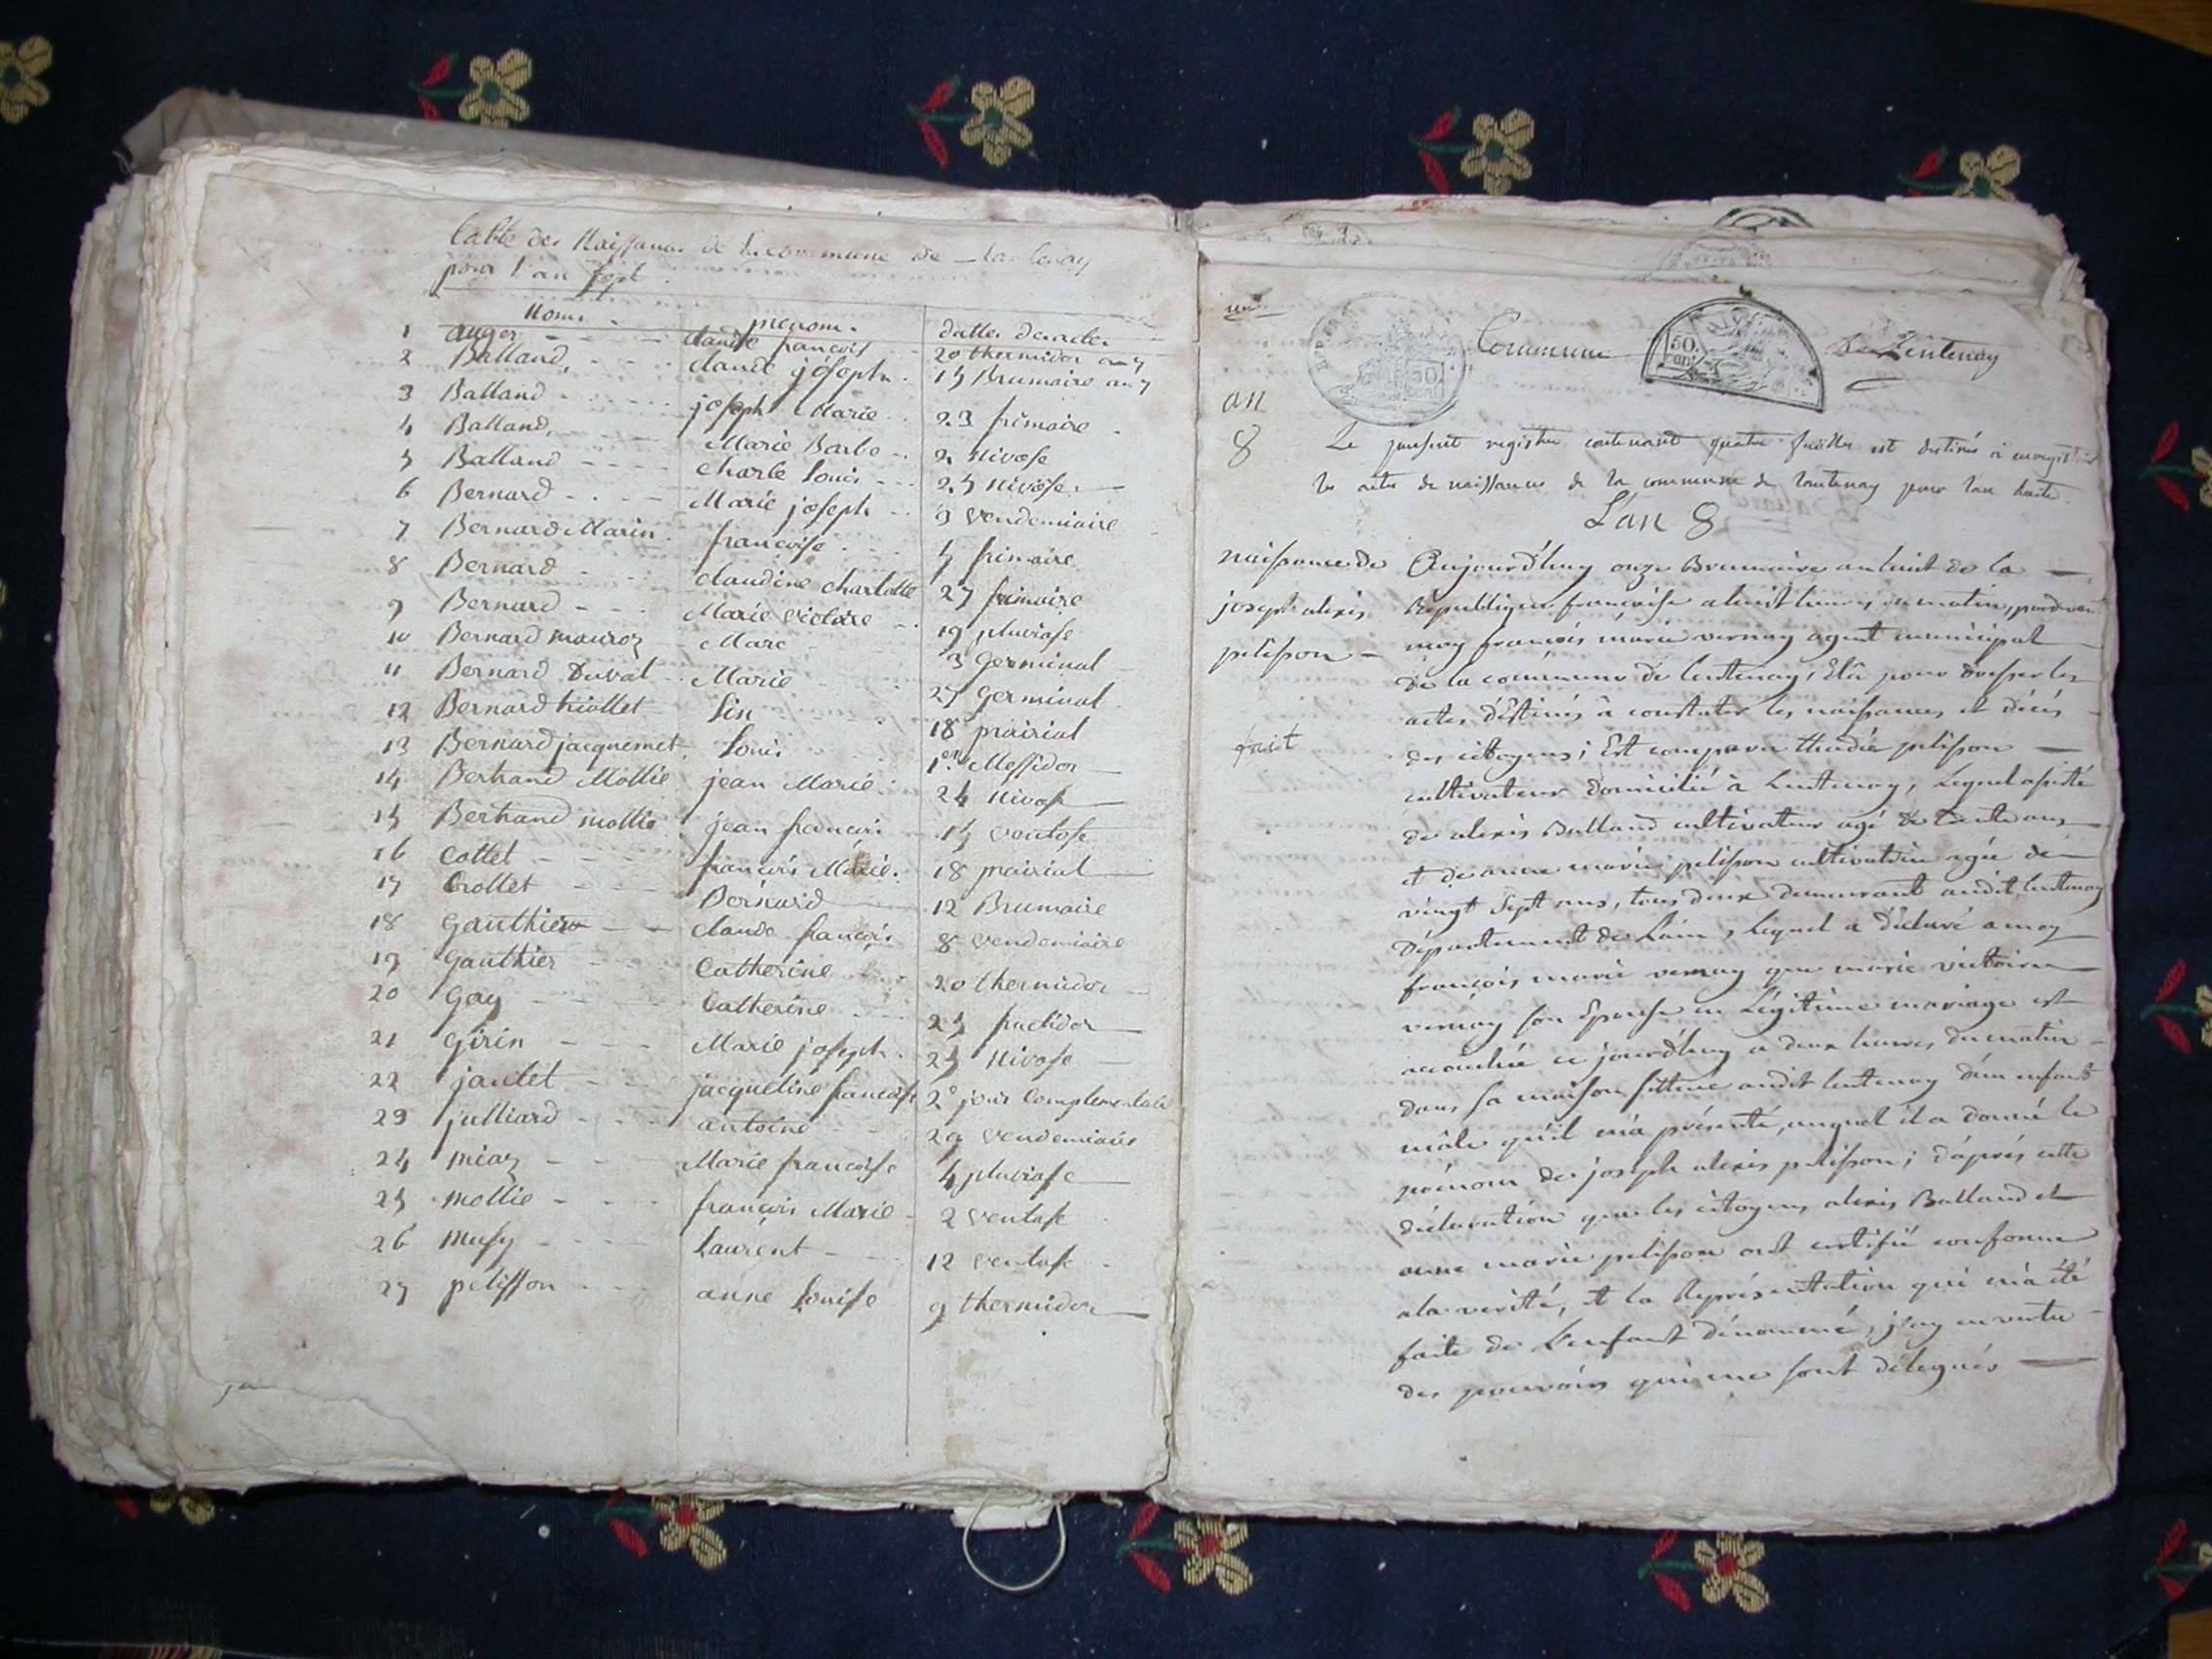 table des Naissances de la commune de
pour l'an sept
Noms prenoms dattes des actes
1 auger claude francois 20 thermidor an 7
2 Balland, claude joseph 15 Brumaire an 7
3 Balland joseph Marie 23 frimaire
4 Balland, Marie Barbe 2 Nivose
5 Balland charle Louis 25 Nivose
6 Bernard Marie joseph 9 vendemiaire
7 Bernard Marin francoise 5 frimaire
8 Bernard claudine charlotte 27 frimaire
9 Bernard Marie victoire 19 pluviose
10 Bernard mauroz Marc 3 Germinal
11 Bernard Duval Marie 27 Germinal
12 Bernard Lin 18 prairial
13 Bernard jacquemet Louis 1er Messidor
14 Bertrand Mollie jean Marie 24 Nivose
15 Bertrand mollie jean francois 15 ventose
16 Cottet francois Marie 18 prairial
17 Crollet Bernard 12 Brumaire
18 Gauthier claude francois 8 vendemiaire
19 Gauthier Catherine 20 thermidor
20 Goy Catherine 25 fructidor
21 Girin Marie joseph 25 Nivose
22 jantet jacqueline francoise 2e jour Complementaire
23 julliard antoine 29 vendemiaire
24 miaz Marie francoise 4 pluviose
25 mollie francois Marie 2 ventose
26 Musy Laurent 12 ventose
27 pelisson anne Louise 9 thermidor
un
REP FRA
50 cent
Commune
50. cent
De Lentenay
an
8
Le present registre contenant quatre feuilles est destiné à enregistrer
les actes de naissances de la commune de lentenay pour l'an huit.
L'an 8
naissance de
joseph alexis
pelisson
fait
Aujourd'huy onze Brumaire an huit de la
République françoise a huit heures du matin, pardevant
moy françois marie vernay agent municipal
de la commune de lentenay, Elû pour dresser les
actes déstinés à constater les naissances et décés
des citoyens; Est comparu pelisson
cultivateur domicilié à Lentenay, Lequel assisté
de alexis Balland cultivateur agé de trente ans
et de anne marie pelisson cultivatrice agée de
vingt Sept ans, tous deux demeurant audit lentenay
Département de Lain, lequel a déclaré a moy
françois marie vernay que marie victoire
vernay son Epouse en Légitime mariage est
accouchée ce jourd'huy a deux heures du matin
dans sa maison sittuée audit lentenay d'un enfant
mâle qu'il m'a présenté, auquel il a donné le
prénom de joseph alexis pelisson; d'aprés cette
déclaration que les citoyens alexis Balland et
anne marie pelisson ont certifié conforme
a la verité, et la Représentation qui m'a été
faite de L'enfant dénommé, j'ay en vertu
des pouvoirs qui me sont délegués